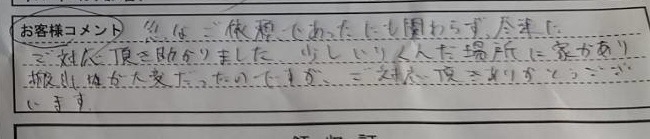 お客様コメント 急なご依頼であったにも関わらず、早速に
ご対応頂き助かりました。少しいりくんだ場所に家があり
搬出等が大変だったのですが、ご対応頂きありがとうござ
います。